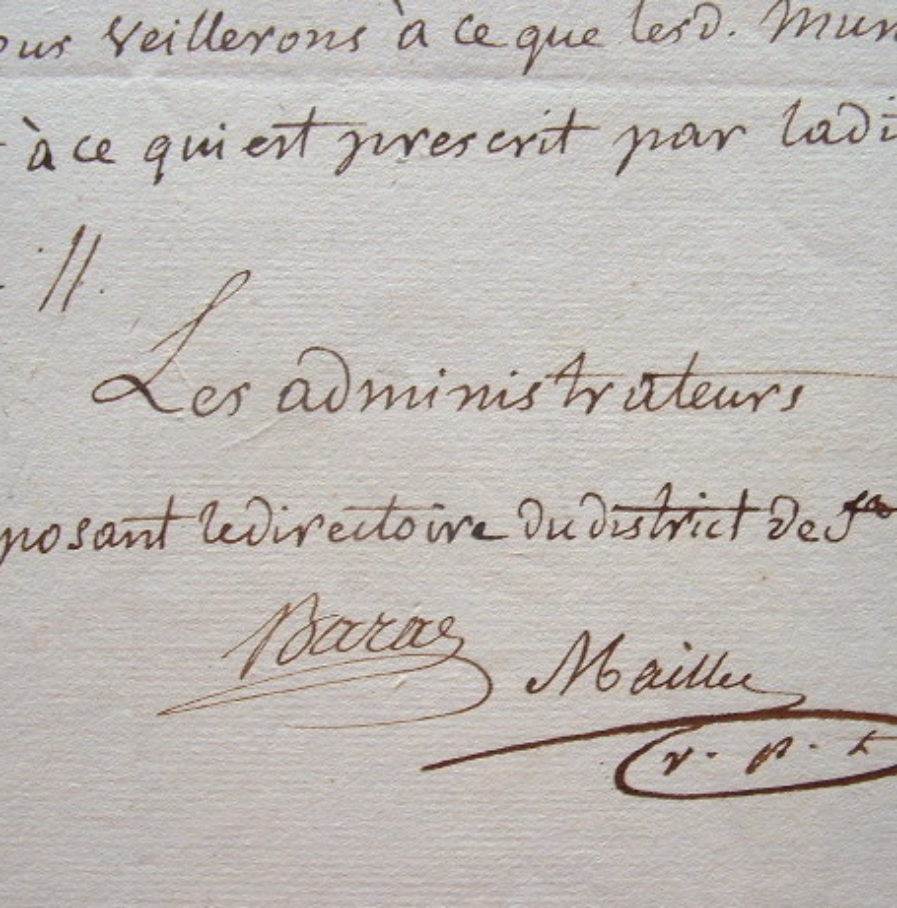 ous veillerons à ce que lesd. Mun
à ce qui est prescrit par ladi
//.
Les administrateurs
posant le directoire du district de
Baras Mailhe
v. p. t